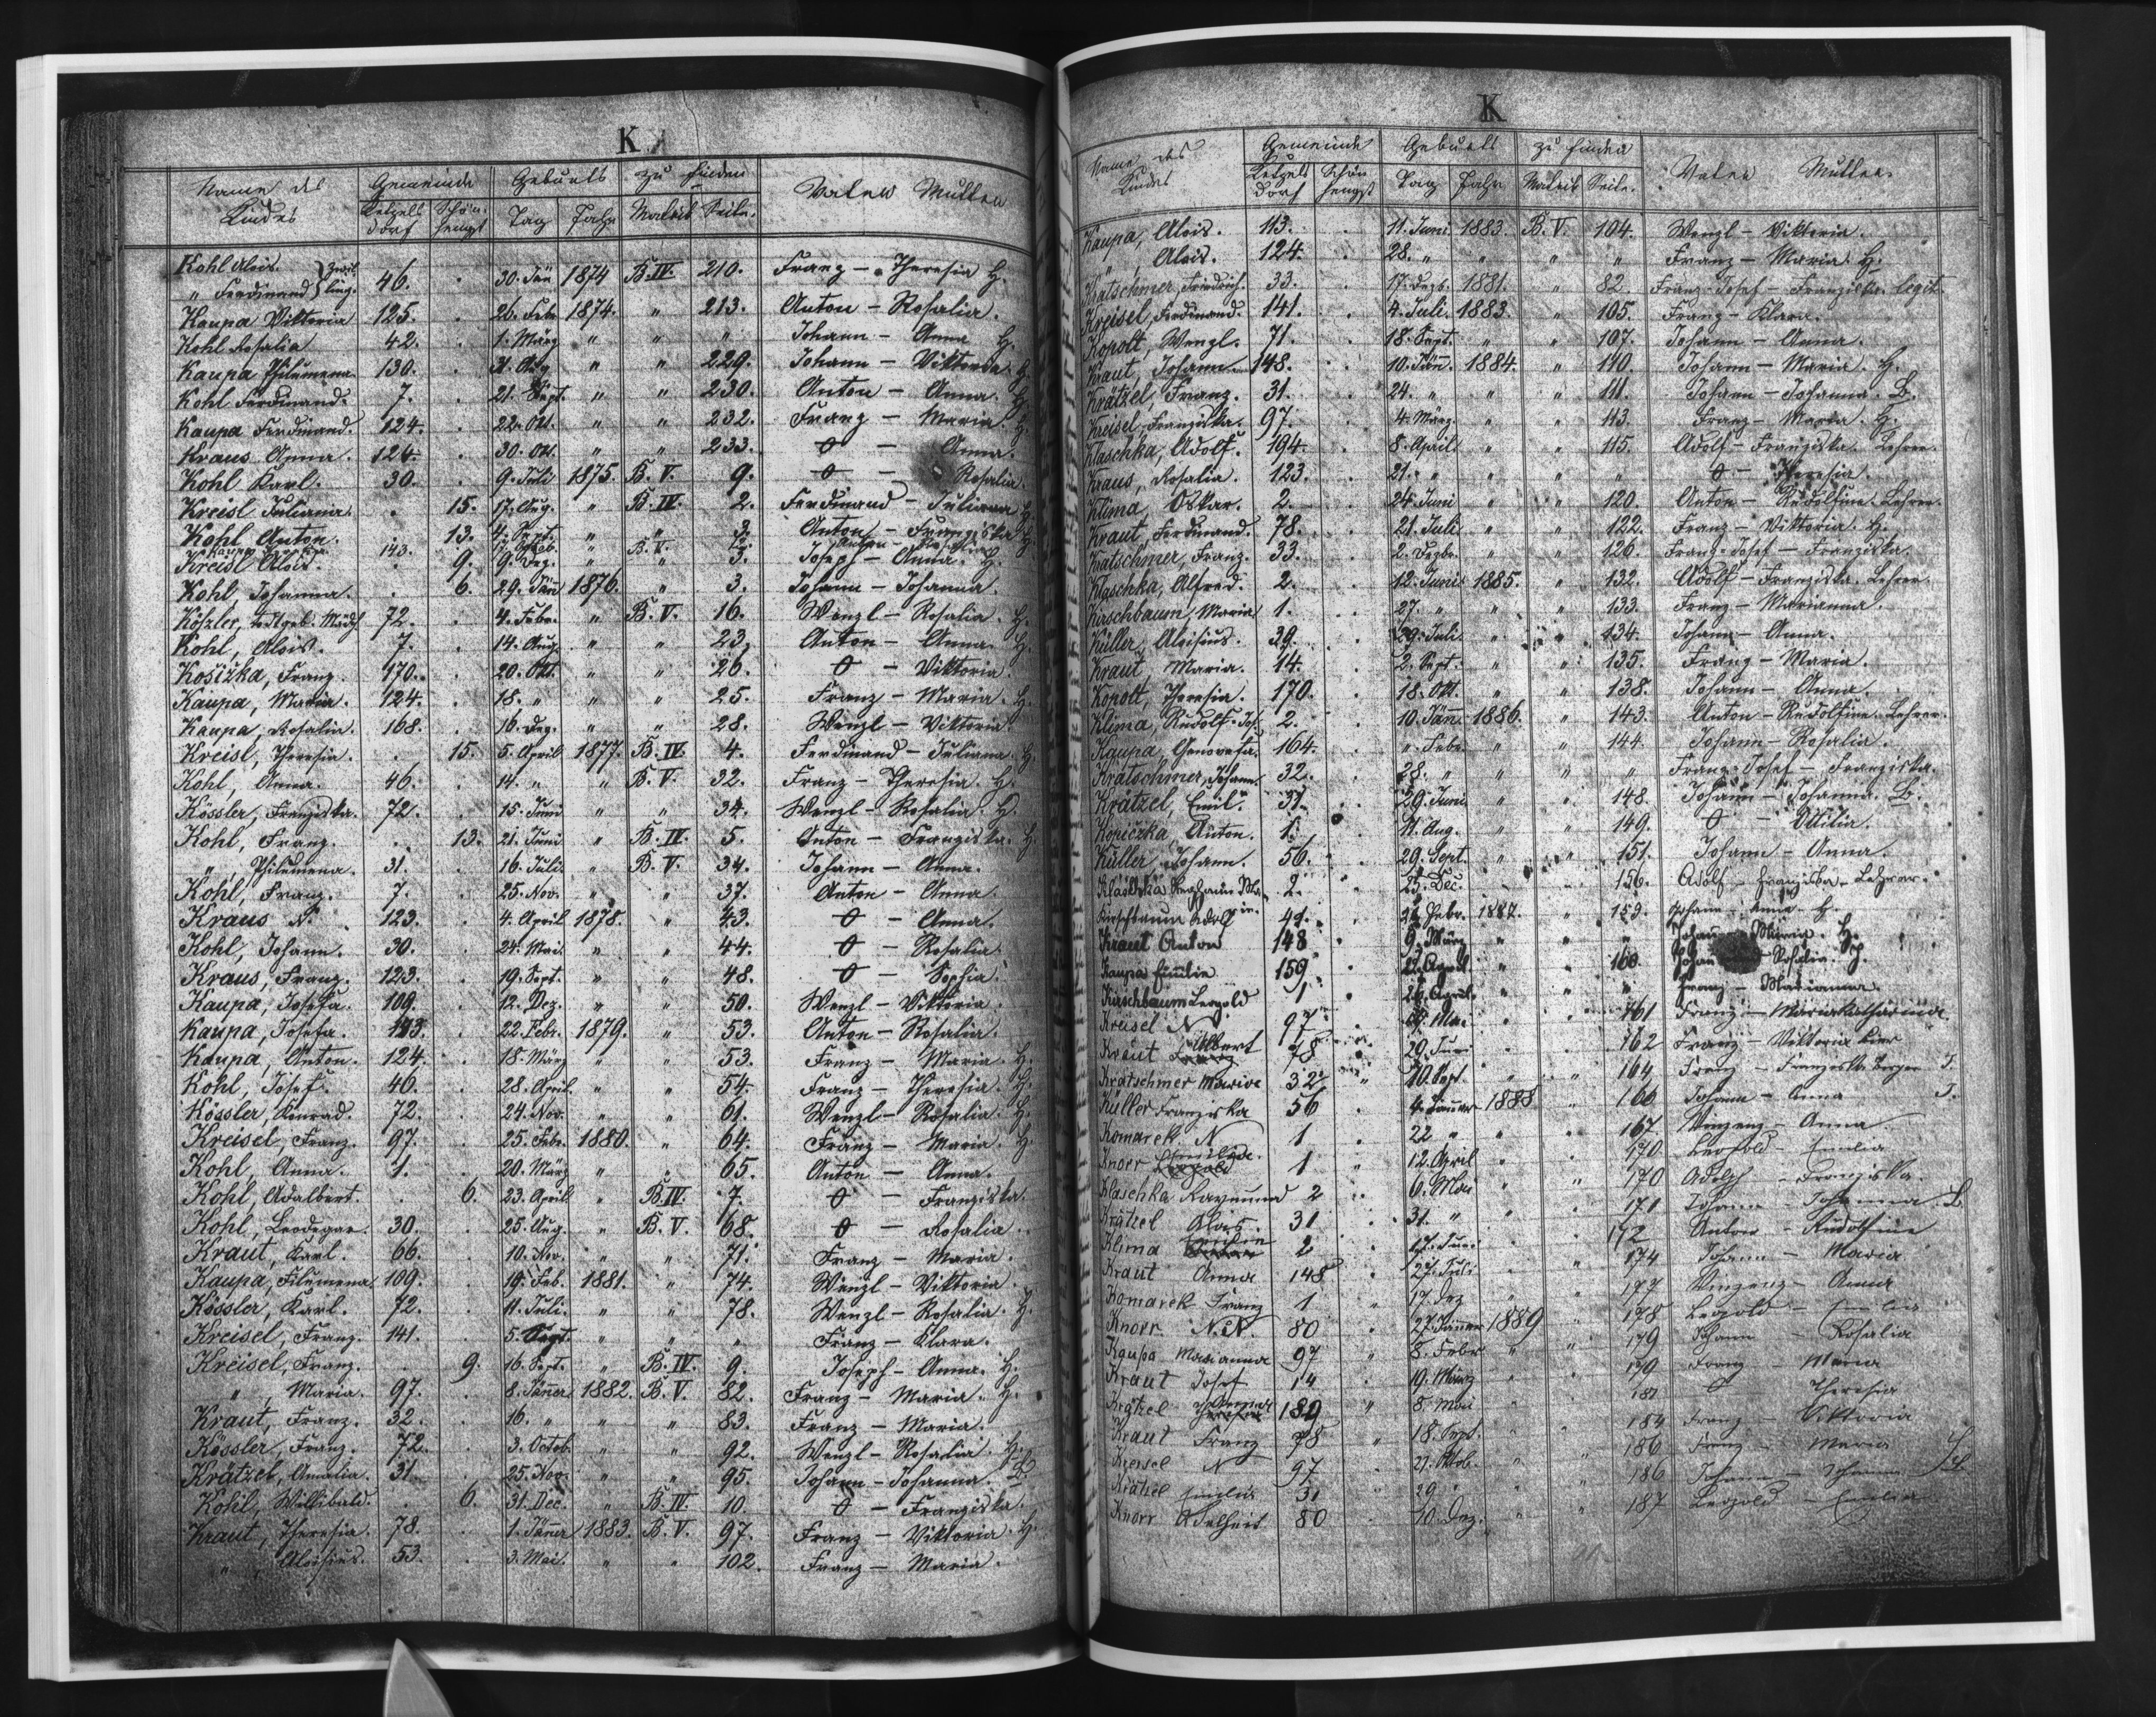 K
Name des Kindes Gemeinde Geburts zu finden Vater Mutter
Ketzelsdorf Schönhengst Tag Jahr Matrik Seite.
Kohl Alois. } Zwillinge. 46. 30. Jän 1874 B. IV. 210. Franz - Theresia H.
" Ferdinand
Kaupa Viktoria 125. 26. Febr 1874. " 213. Anton - Rosalia.
Kohl Rosalia 42. 1. März " " " Johann - Anna H.
Kaupa Philumena. 130. 21. Aug " " 229. Johann - Viktoria H.
Kohl Ferdinand. 7. 21. Sept. " " 230. Anton - Anna. H.
Kaupa Ferdinand. 124. 22. Okt. " " 232. Franz - Maria. H.
Kraus Anna. 124. 30. Okt. " " 233. O - Anna.
Kohl Karl. 30. 9. Juli 1875. B. V. 9. O - Rosalia.
Kreisl Juliana. 15. 17. Aug. " B. IV. 2. Ferdinand - Juliana H.
Kohl Anton. 13. 4. Sept. " " 2. Anton - Franziska H.
Kaupa 143. B. V.
Kreisl Alois. 9. 9. Dez. " " 3. Joseph - Anna. H.
Kohl, Johanna. 6. 29. Jän 1876. " 3. Johann - Johanna.
Kößler, todtgeb. Mädch. 72. 4. Febr. " B. V. 16. Wenzl - Rosalia. H.
Kohl, Alois. 7. 14. Aug. " " 23. Anton - Anna. H.
Kosižka, Franz. 170. 20. Okt. " " 26. O - Viktoria.
Kaupa, Maria. 124. 18. " " " 25. Franz - Maria. H.
Kaupa, Rosalia. 168. 16. Dez. " " 28. Wenzl - Viktoria.
Kreisl, Theresia. 15. 5. April 1877. B. IV. 4. Ferdinand - Juliana. H.
Kohl, Anna. 46. 14. " " B. V. 32. Franz - Theresia. H.
Kössler, Franziska. 72. 15. Juni " " 34. Wenzl - Rosalia. H.
Kohl, Franz. 13. 21. Juni " B. IV. 5. Anton - Franziska. H.
" , Philumena. 31. 16. Juli. " B. V. 34. Johann - Anna.
Kohl, Franz. 7. 25. Nov. " " 37. Anton - Anna.
Kraus N. 123. 4. April 1878. " 43. O - Anna.
Kohl, Johann. 30. 24. Mai. " " 44. O - Rosalia.
Kraus, Franz. 123. 19. Sept. " " 48. O - Sophia.
Kaupa, Josefa. 109. 12. Dez. " " 50. Wenzl - Viktoria.
Kaupa, Josefa. 143. 22. Febr. 1879. " 53. Anton - Rosalia.
Kaupa, Anton. 124. 18. März " " 53. Franz - Maria. H.
Kohl, Josef. 46. 28. April. " " 54. Franz - Theresia. H.
Kössler, Konrad. 72. 24. Nov. " " 61. Wenzl - Rosalia. H.
Kreisel, Franz. 97. 25. Febr. 1880. " 64. Franz - Maria. H.
Kohl, Anna. 1. 20. März " " 65. Anton - Anna.
Kohl, Adalbert. 6. 23. April " B. IV. 7. O - Franziska.
Kohl, Leodegar. 30. 25. Aug. " B. V. 68. O - Rosalia.
Kraut, Karl. 66. 10. Nov. " " 71. Franz - Maria.
Kaupa, Filumena. 109. 19. Feb. 1881. " 74. Wenzl - Viktoria.
Kössler, Karl. 72. 11. Juli. " " 78. Wenzl - Rosalia. H.
Kreisel, Franz. 141. 5. Sept. " " " Franz - Klara.
Kreisel, Franz. 9. 16. Sept. " B. IV. 9. Joseph - Anna. H.
" , Maria. 97. 8. Jänner 1882. B. V. 82. Franz - Maria. H.
Kraut, Franz. 32. 16. " " " 83. Franz - Maria.
Kössler, Franz. 72. 3. Octob. " " 92. Wenzl - Rosalia. H.
Krätzel, Amalia. 31. 25. Nov. " " 95. Johann - Johanna. B.
Kohl, Willibald. 6. 31. Dec. " B. IV. 10. O - Franziska.
Kraut, Theresia. 78. 1. Jänner 1883. B. V. 97. Franz - Viktoria. H.
" , Aloisius. 53. 3. Mai. " " 102. Franz - Maria.
K
Name des Kindes Gemeinde Geburts zu finden Vater Mutter
Ketzelsdorf Schönhengst Tag Jahr Matrik Seite.
Kaupa, Alois. 113. 11. Juni 1883. B. V. 104. Wenzl - Viktoria.
" , Alois. 124. 28. " " " " Franz - Maria. H.
Kratschmer, Friedrich. 33. 17. Dezb. 1881. " 82. Franz-Josef - Franziska. legit.
Kreisel, Ferdinand. 141. 4. Juli. 1883. " 105. Franz - Klara.
Kopolt, Wenzl. 71. 18. Sept. " " 107. Johann - Anna.
Kraut, Johann. 148. 10. Jän. 1884. " 110. Johann - Maria. H.
Krätzel, Franz. 31. 24. " " " 111. Johann - Johanna. B.
Kreisel, Franziska. 97. 4. März. " " 113. Franz - Maria. H.
Klaschka, Adolf. 194. 8. April. " " 115. Adolf - Franziska. Lehrer.
Kraus, Rosalia. 123. 21. " " " " O - Theresia.
Klima, Oskar. 2. 24. Juni " " 120. Anton - Rudolfine. Lehrer.
Kraut, Ferdinand. 78. 21. Juli. " " 122. Franz - Viktoria. H.
Kratschmer, Franz. 33. 2. Dezbr. " " 126. Franz-Josef - Franziska.
Klaschka, Alfred. 2. 12. Juni 1885. " 132. Adolf - Franziska. Lehrer.
Kirschbaum, Maria 1. 27. " " " 133. Franz - Marianna.
Küller, Aloisius. 39. 29. Juli. " " 134. Johann - Anna.
Kraut, Maria. 14. 2. Sept. " " 135. Franz - Maria.
Kopolt, Theresia. 170. 18. Okt. " " 138. Johann - Anna.
Klima, Rudolf-Jos. 2. 10. Jän. 1886. " 143. Anton - Rudolfine. Lehrer.
Kaupa, Genovefa. 164. " Febr. " " 144. Johann - Rosalia.
Kratschmer, Johann. 32. 28. " " " " Franz-Josef - Franziska.
Krätzel, Emil. 31. 29. Juni " " 148. Johann - Johanna. B.
Kopiczka, Anton. 1. 11. Aug. " " 149. O - Ottilia.
Küller Johann. 56. 29. Sept. " " 151. Johann - Anna.
Klaschka 2. 25. Dec. 156. Adolf - Franziska. Lehrer.
Kirschbaum Adolf 41. Febr. 1887. " 159. Johann - Anna. H.
Kraut Anton 148 9. März " " " Johann - Maria. H.
Kaupa Emilie 159. 22. April. " " 160. Rosalia. H.
Kirschbaum Leopold 1 April. " " " Franz - Marianna.
Kreisel N 97 Mai 161 Franz - Maria Katharina
Kraut Albert 78 29. Juni 162 Franz - Viktoria
Kratschmer Marie 32 10. Sept. 164 Franz - Franziska J.
Küller Franziska 56 4. Jänner 1888 166 Johann - Anna J.
Komarek N 1 22 " 167 Vinzenz - Anna
Knorr 1 12. April 170 Leopold - Emilia
Klaschka Raymund 2 6. Mai 170 Adolf - Franziska.
Krätzel Alois. 31 31. " 171 Johann - Johanna B.
Klima 2 17. Juni 172 Anton - Rudolfine
Kraut Anna 148 27. Juli 174 Johann - Maria
Komarek Franz 1 17. Dez 177 Vinzenz - Anna
Knorr N.N. 80 27. Jänner 1889 178 Leopold - Emilia
Kaupa Marianna 97 8. Febr " 179 Johann - Rosalia
Kraut Josef 14 19. März 179 Franz - Maria
Krätzel 189 8. Mai 181 O - Theresia
Kraut Franz 78 18. Sept. 184 Franz - Viktoria
Kreisel N 97 21. Oktob. 186 Franz - Maria
Krätzel Emilia 31 29. " 186 Johann - Johanna B.
Knorr Adelheid 80 10. Dez. 187 Leopold - Emilia